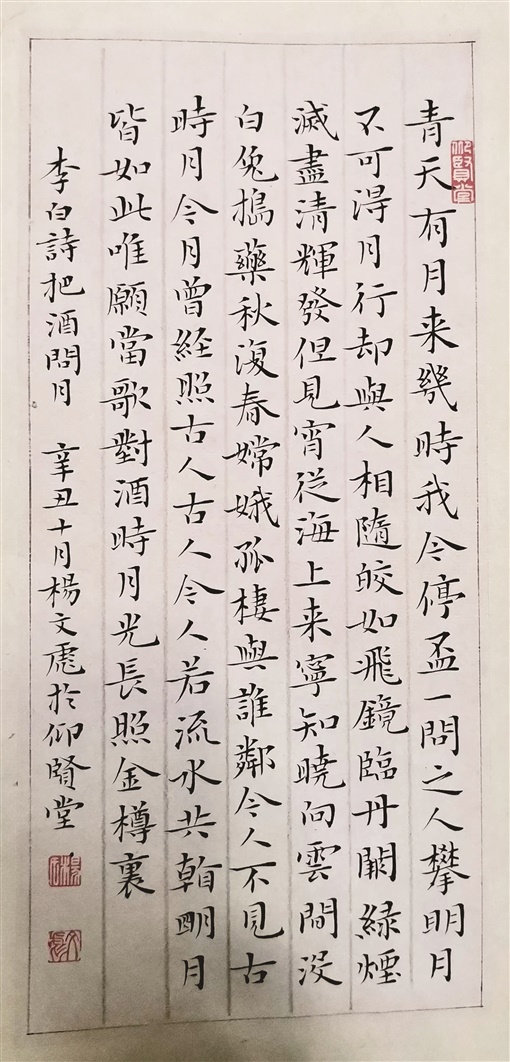 仰賢堂
青天有月来幾時我今停盃一問之人攀明月
不可得月行却與人相隨皎如飛鏡臨丹闕緑煙
滅盡清輝發但見宵從海上来寧知曉向雲間沒
白兔搗藥秋復春嫦娥孤棲與誰鄰今人不見古
時月今月曾経照古人古人今人若流水共看明月
皆如此唯願當歌對酒時月光長照金樽裏
李白詩把酒問月 辛丑十月楊文彪於仰賢堂